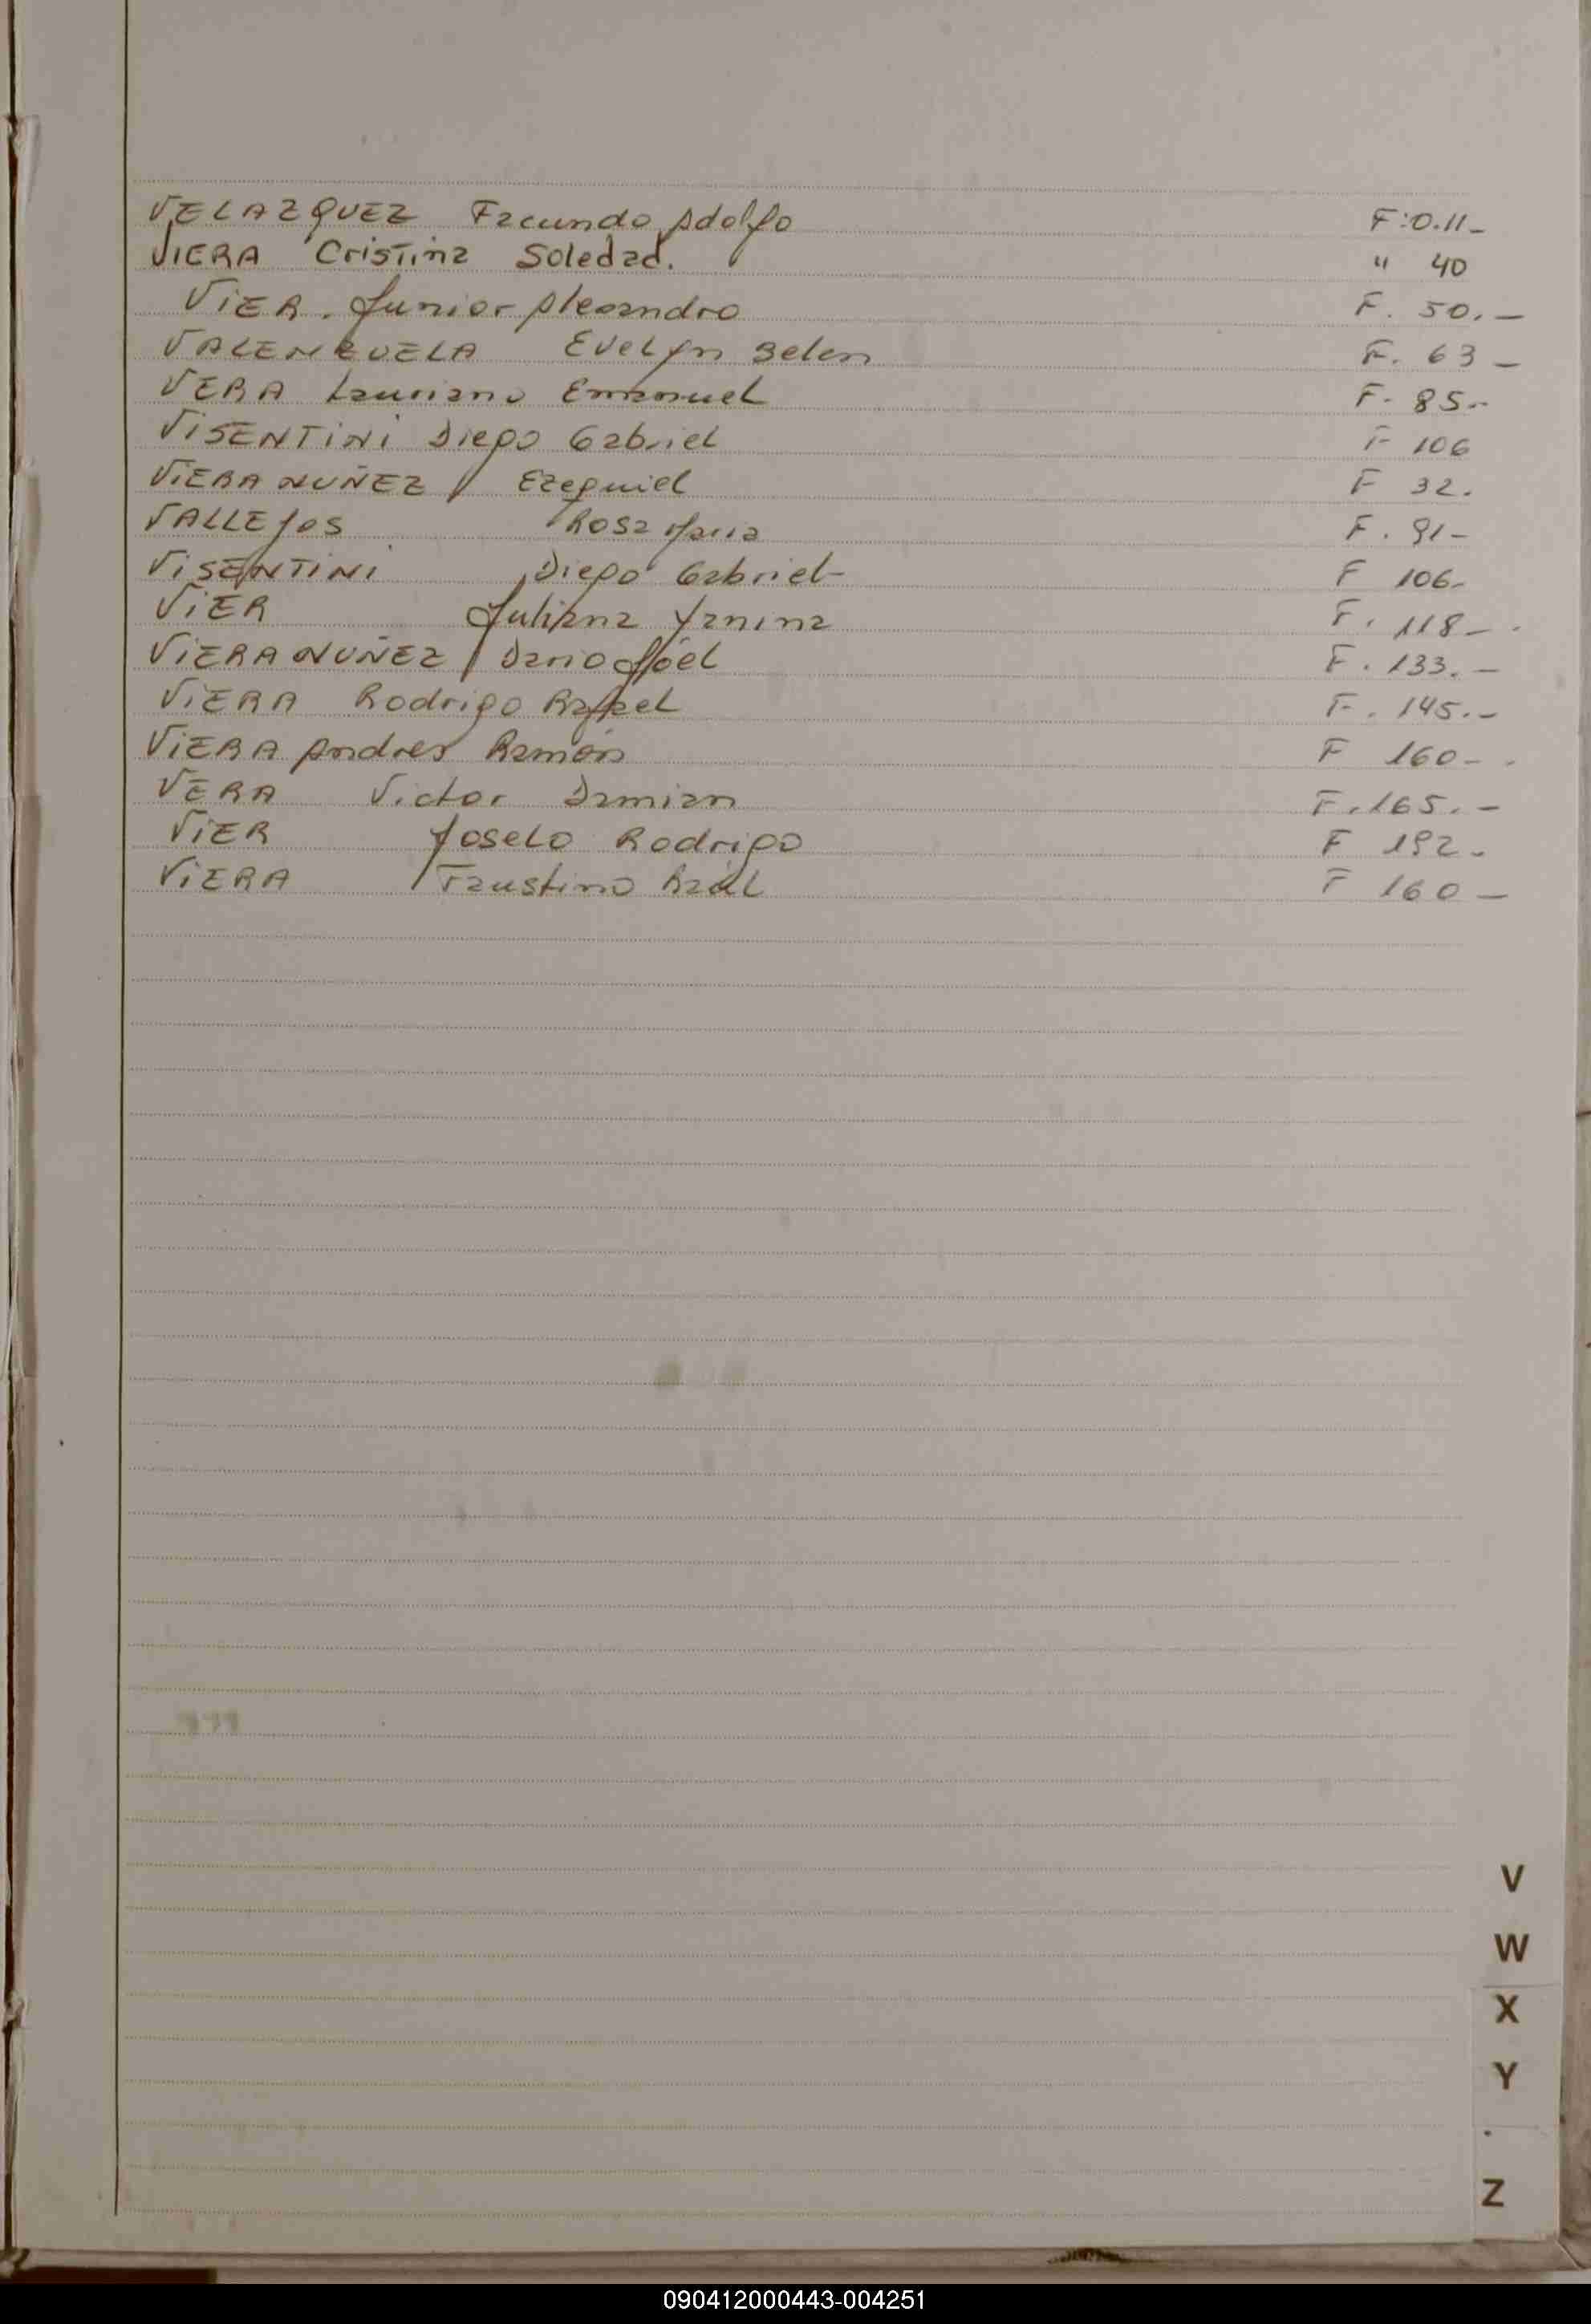 VELAZQUEZ Facundo Adolfo F:0.11-
VIERA Cristina Soledad. " 40
ViER. Junior Aleandro F. 50.-
VALENZUELA Evelyn Belen F. 63-
VERA Lauriano Emanuel F- 85.-
ViSENTiNi Diego Gabriel F 106
ViERA NUÑEZ Ezequiel F 32.
VALLEjos Rosa Maria F. 91-
ViSENTiNi Diego Gabriel- F 106-
ViER Juliana Yanina F. 118-
ViERA NUÑEZ Dario Joel F. 133.-
ViERA Rodrigo Rafael F. 145.-
ViERA Andres Ramón F 160-
VERA Victor Damian F. 165.-
ViER Joselo Rodrigo F 192-
ViERA Faustino Raúl F 160-
V
W
X
Y
Z
090412000443-004251